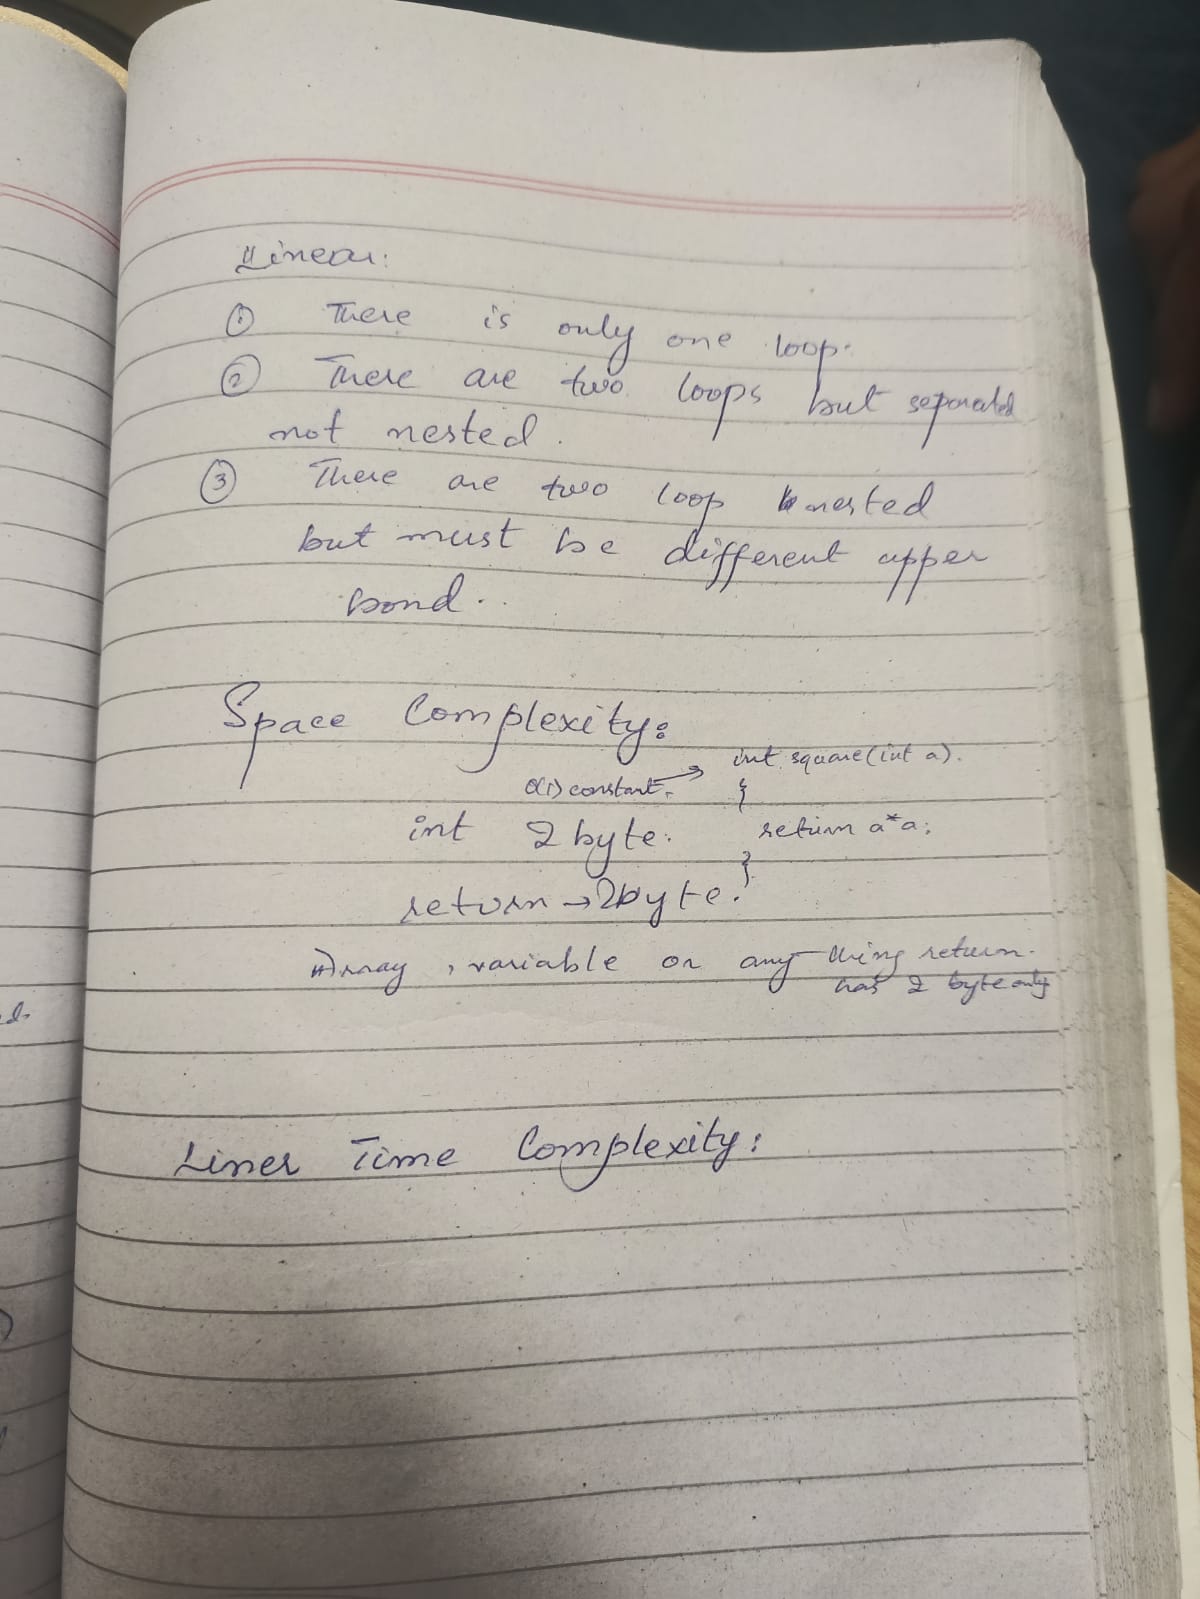 Linear:
① There is only one loop.
② There are two loops but separated
not nested.
③ There are two loop nested
but must be different upper
bond..
Space Complexity:
int square(int a).
O(1) constant. → {
int 2 byte. return a*a;
}
return → 2byte.
Array, variable or any thing return.
has 2 byte only
Liner Time Complexity:
ed.